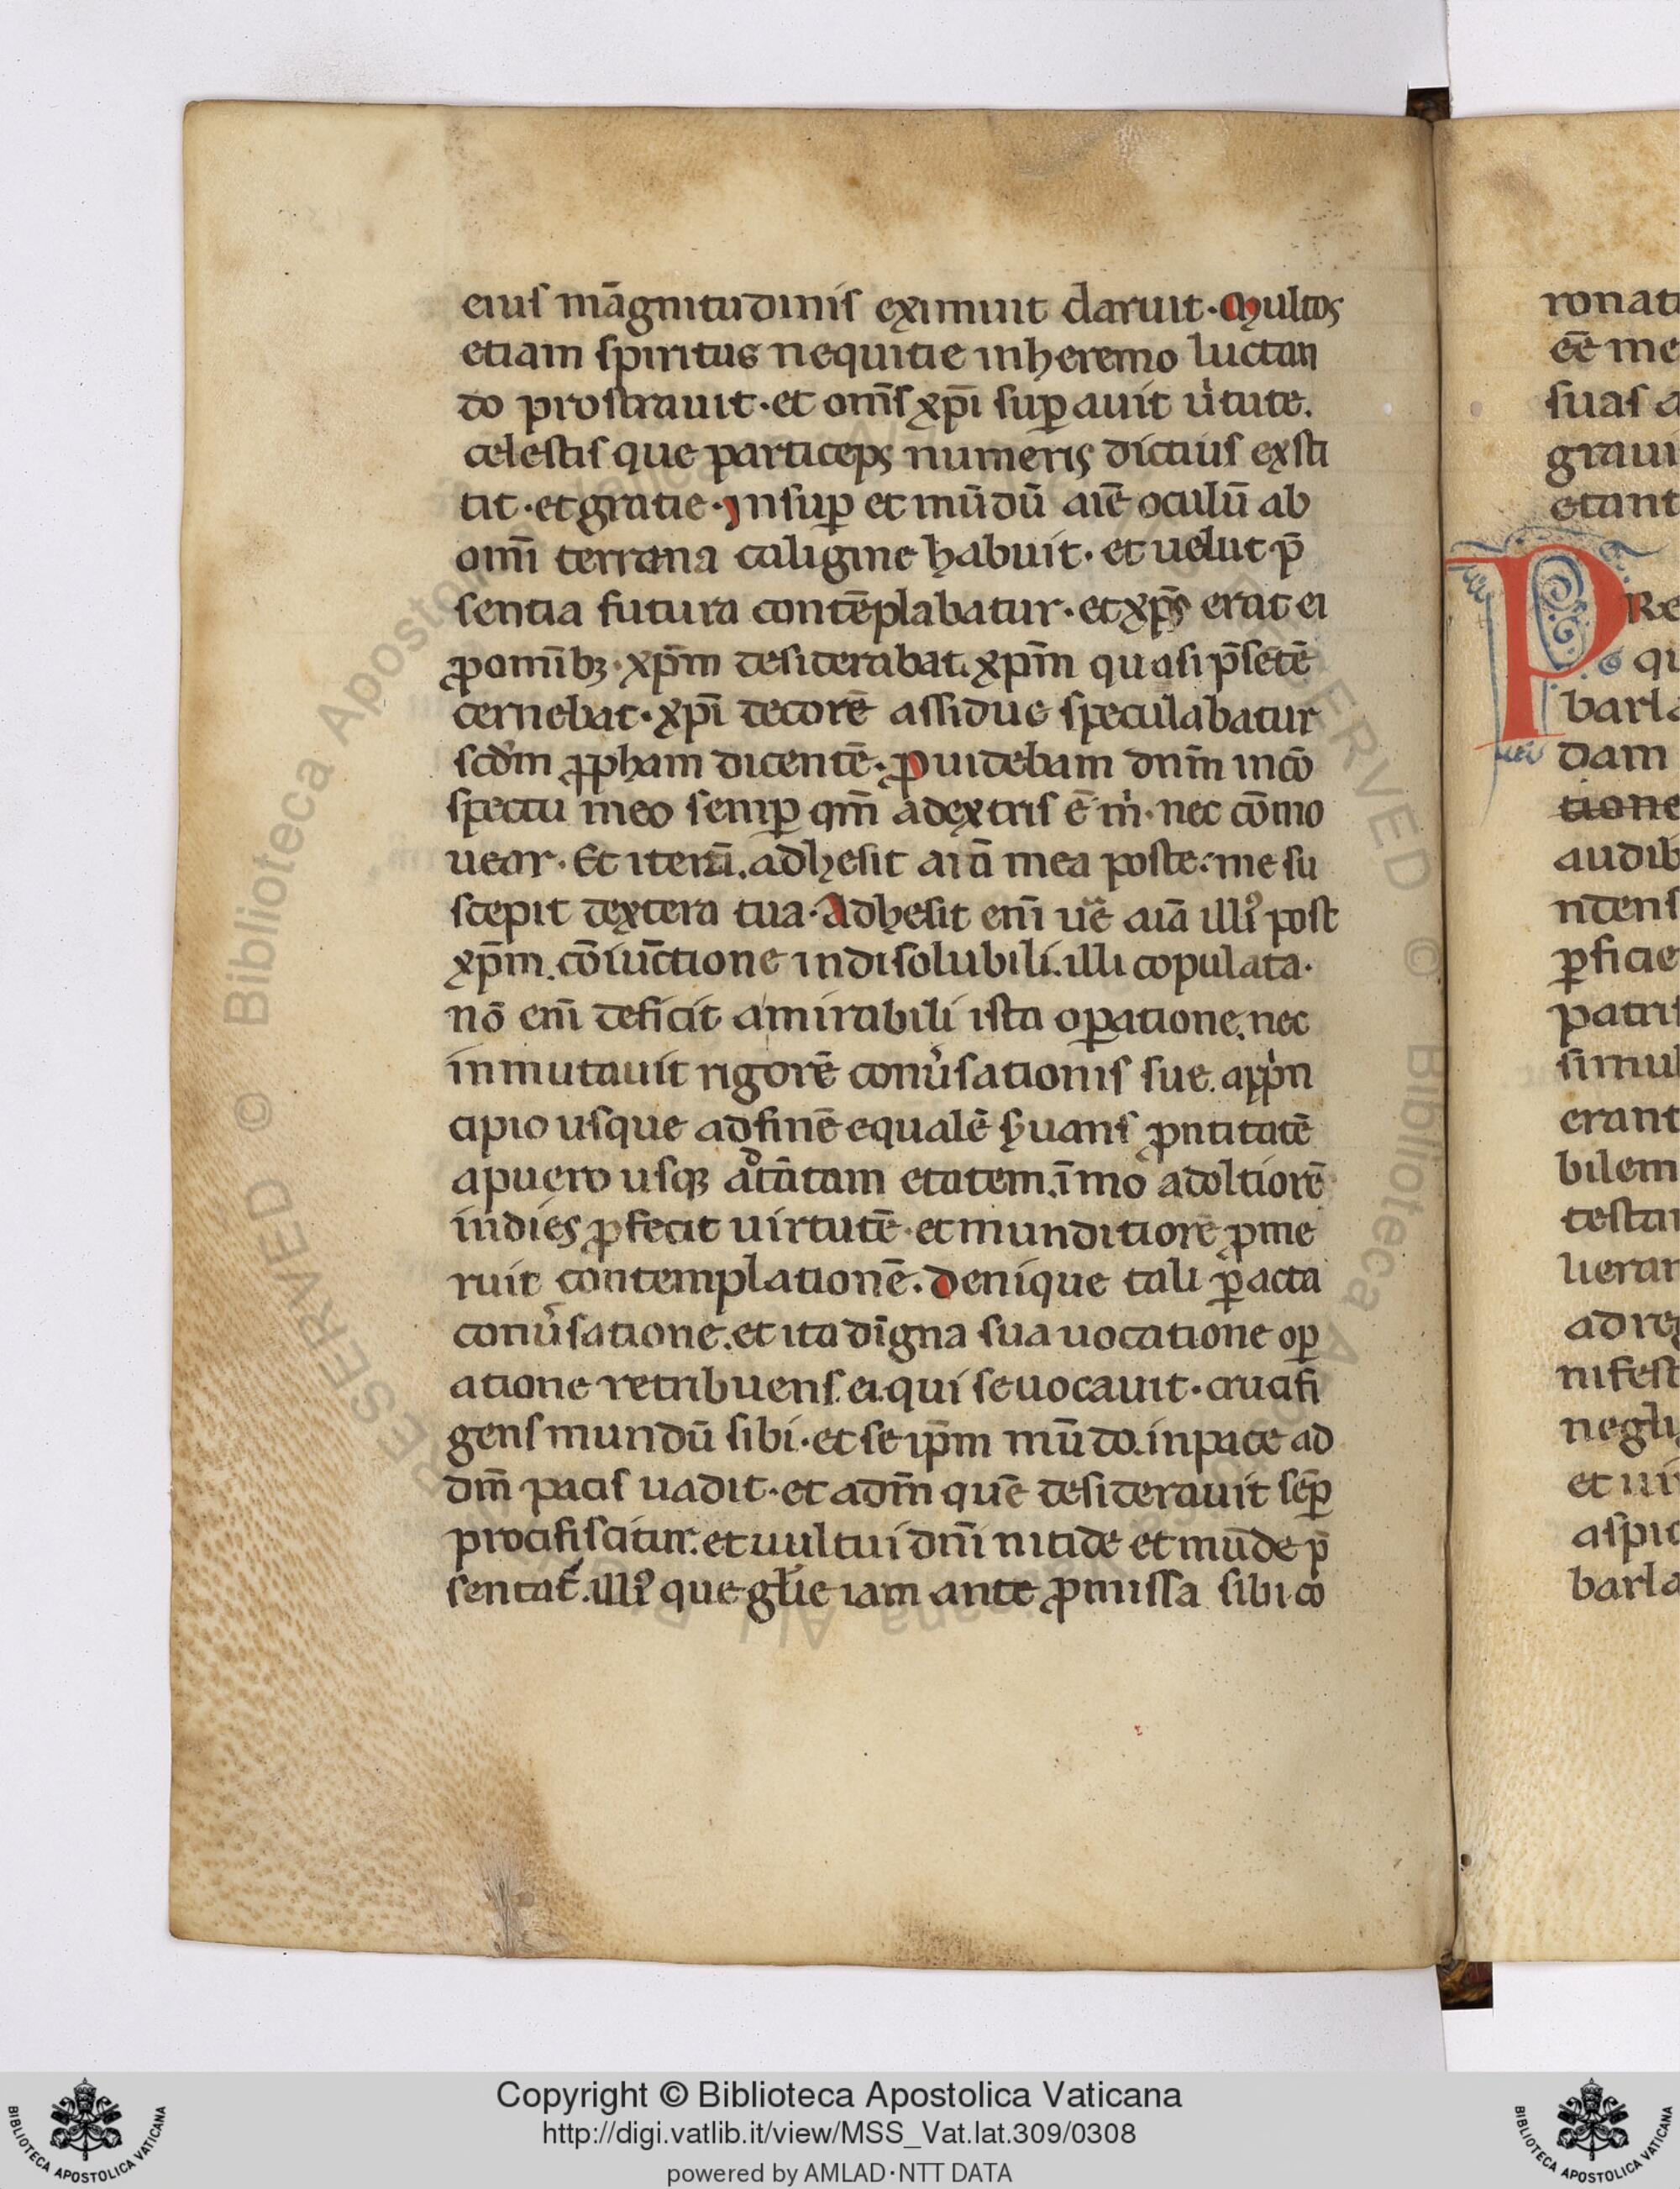 eius māgnitudinis eximiuit claruit. Multos
etiam spiritus nequitie inheremo luctan
do prostrauit. et om̄s xp̄i suꝑauit u̓tute.
celestis que particeps numeris dictius exsti
tit. et gratie. Insuꝑ et mūdū aīē oculū ab
om̄i terrena caligine habuit. et uelut p̄
sentia futura contēplabatur. et xp̄s erat ei
ꝓ omībꝫ. xp̄m desiderabat. xp̄m quasi p̄sētē
cernebat. xp̄i decorē assidue speculabatur
scd̓m ꝓpham dicentē. Ꝓuidebam dn̄m incō
spectu meo semꝑ qm̄ adextris ē m̓. nec cōmo
uear. Et iterū. adhesit aīā mea poste: me su
scepit dextera tua. Adhesit em̄ ue͛ aīā illiꝰ post
xp̄m. cōiūctione indisolubili. illi copulata.
nō em̄ deficit amirabili ista oꝑatione. nec
inmutauit rigorē conu̓sationis sue. app̓n
cipio usque ad finē equalē s̓uans ꝓntitatē
apuero usqꝫ ad tātam etatem. īmo adoltiorē
indies ꝓfecit uirtutē. et munditiorē ꝓme
ruit contemplationē. Denique tali ꝑacta
conu̓satione. et ita digna sua uocatione oꝑ
atione retribuens. ei. qui se uocauit. crucifi
gens mundū sibi. et se ip̄m mūdo. in pace ad
dm̄ pacis uadit. et addm̄ quē desiderauit sēꝑ
procifiscitur. et uultui dn̄i nitide et mūde p̄
sentat᷑. illiꝰ que gl̄ie iam ante ꝓmissa sibi co
ronati
eē me
suas a
graui
etant
PRe
qu
barla
dam
tione
audib
ndens
ꝑficie
patris
simul
erant
bilem
testan
lieran
ad reg
nifest
negli
et uir
aspic
barla
Copyright © Biblioteca Apostolica Vaticana
http://digi.vatlib.it/view/MSS_Vat.lat.309/0308
powered by AMLAD·NTT DATA
BIBLIOTECA APOSTOLICA VATICANA
BIBLIOTECA APOSTOLICA VATICANA